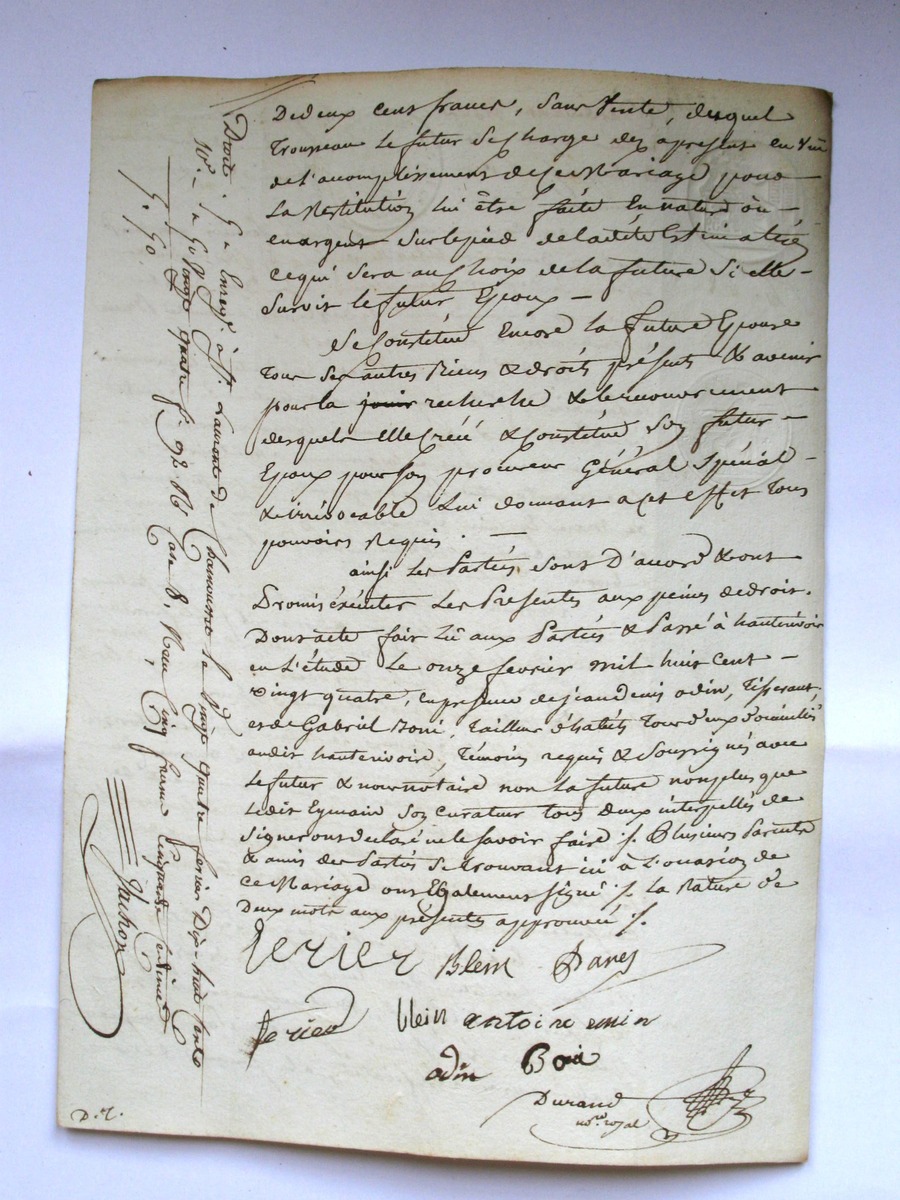 De deux cent francs, sans vente, duquel
Trousseau le futur se charge des apresent en vüe
de l'acomplissement de ce mariage pour
La restitution lui être faite en nature où
en argent sur le pied de la dite Estimation
ce qui sera au choix de la future si elle
survit le futur Epoux
se constitue Encore la future Epouse
Tous ses autres Biens & droits présents & avenir
pour la jouir recherche & le recouvrement
desquels elle crée & constitue son futur
Epoux pour son procureur Général spécial
& irrévocable Lui donnant a cet effet tous
pouvoirs Requis.
ainsi Les Parties sont D'acord & ont
Promis éxécuter Les Presentes aux peines de droit.
Dont acte fait Lû aux Parties & Passé à hauterivoire
en L'étude Le onze fevrier mil huit cent
vingt quatre, en presence de jean denis odin, Tisserant,
et de Gabriel Boni, Tailleur d'habits Tous deux domiciliés
audit hauterivoire, Témoins requis & soussignés avec
Le futur & nous notaire non La future non plus que
Ledit Eymain son curateur tous deux interpellés de
signer ont declaré ne le savoir faire ./. Plusieurs Parents
& amis des Parties se trouvant ici à L'ocasion de
ce Mariage ont Egalement signé ./. La rature de
Deux mots aux présentes approuvée ./.
Blein
blein antoine
odin Boni
Durand
nore royal
D. r.
Enregé à St. Laurent de Chamousset le vingt quatre fevrier Dix-huit cents
vingt quatre fo 92 Vo Case 8. Reçu cinq francs cinquante centimes
Droit. 5 "
10e. " 50
5. 50